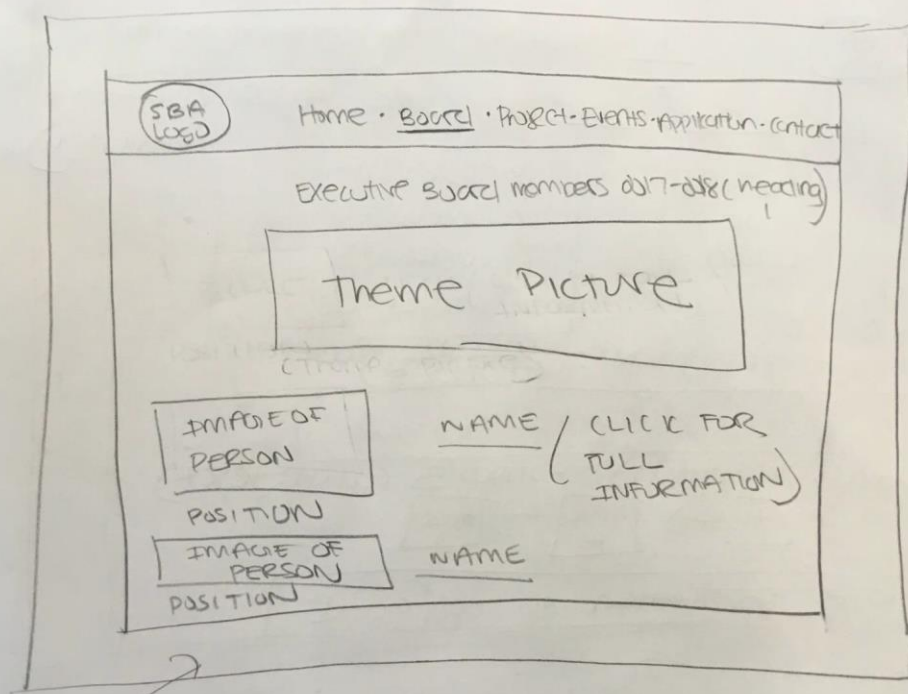 SBA
LOGO
Home · Board · Project - Events - Application - Contact
Executive Board members 2017-2018 (heading)
Theme Picture
IMAGE OF
PERSON
NAME (CLICK FOR
FULL
INFORMATION)
POSITION
IMAGE OF
PERSON
NAME
POSITION